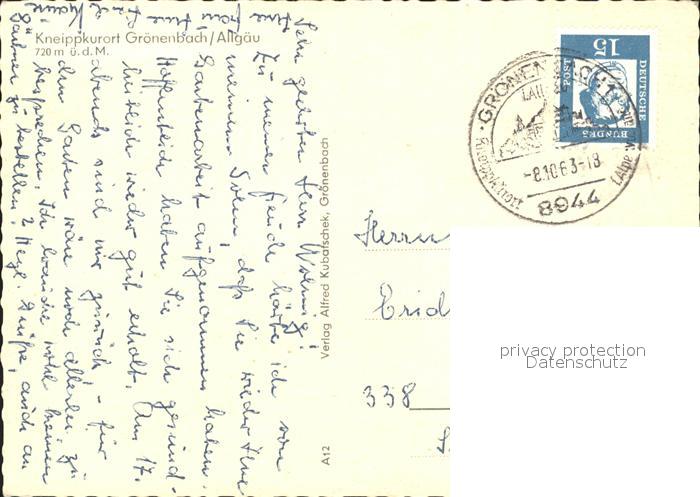 Kneippkurort Grönenbach/Allgäu
720 m ü. d. M.
Sehr geehrter Herr
Zu meiner Freude hörte ich von
meinem Sohn, daß Sie wieder Ihre
Gartenarbeit aufgenommen haben.
Hoffentlich haben Sie sich gesund-
heitlich wieder gut erholt. Am 17.
abends sind wir zurück! - für
den Garten wäre noch allerlei zu
besprechen. Ich brauche wohl keinen
Gärtner zu bestellen! Herzl. Grüße, auch an
Verlag Alfred Kubatschek, Grönenbach
A12
15
DEUTSCHE
BUNDES
POST
GRÖNENBACH
-8.10.63-18
8944
Herrn
338
privacy protection
Datenschutz